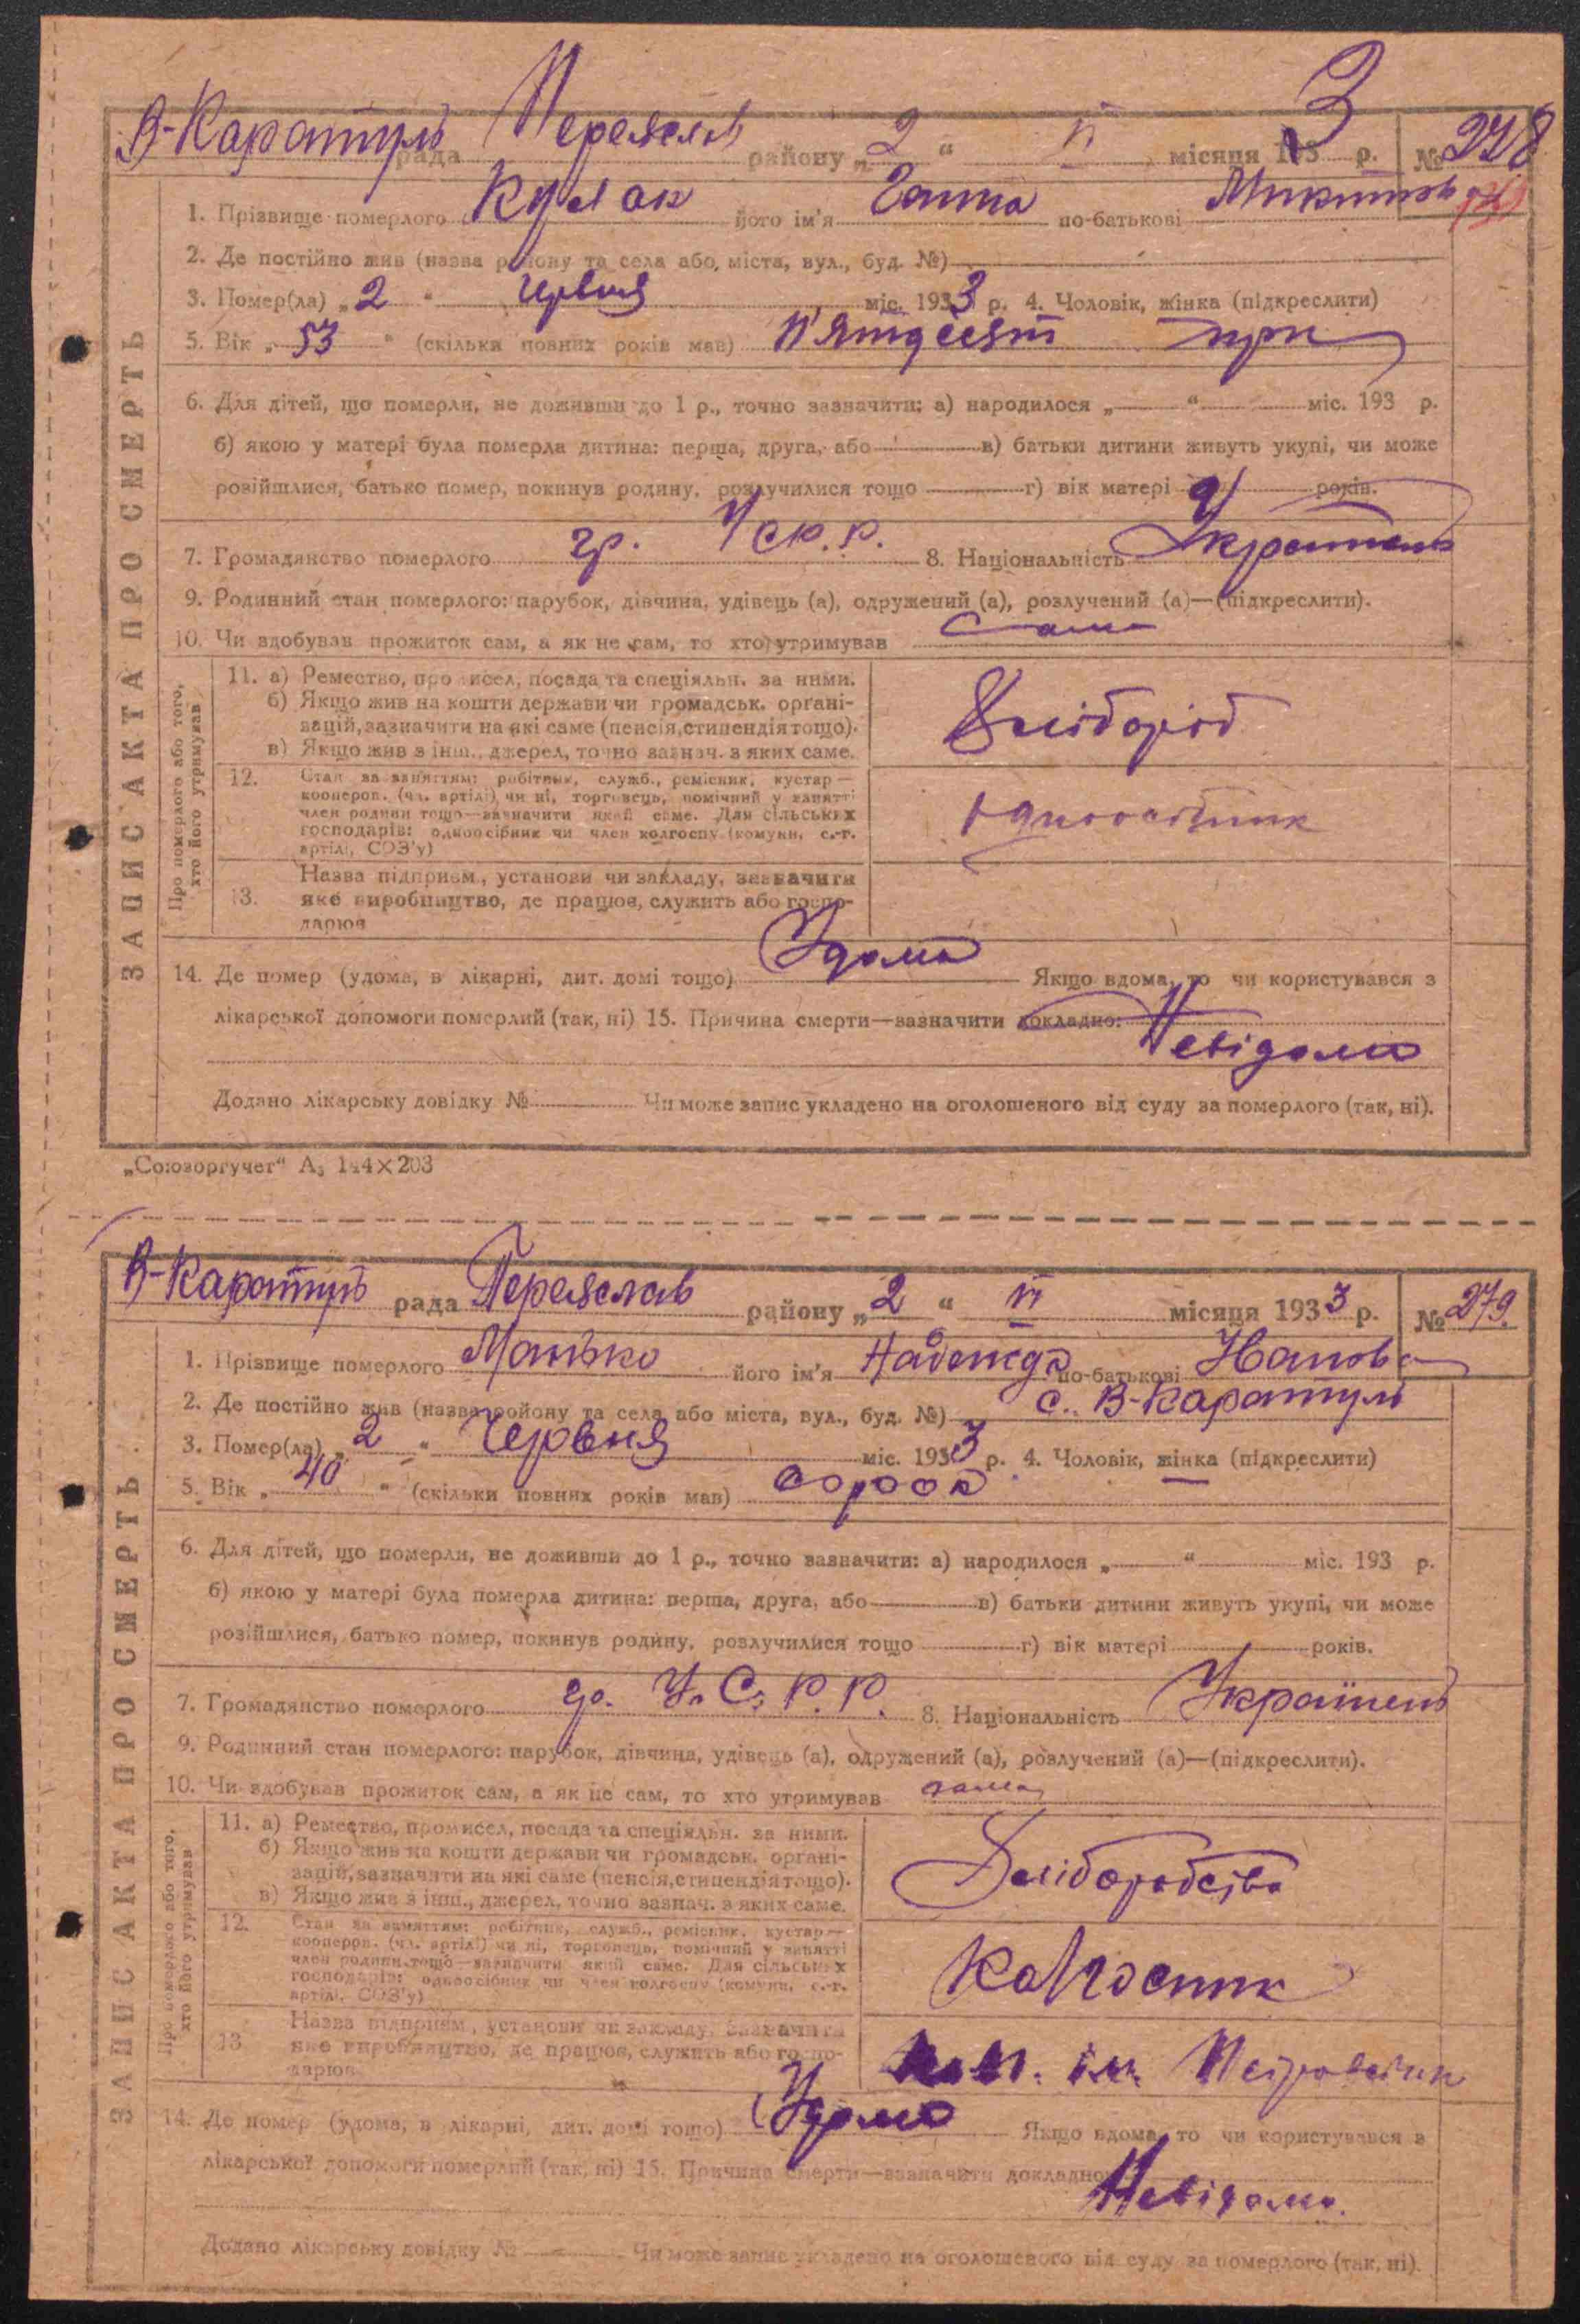 ЗАПИС АКТА ПРО СМЕРТЬ
В-Каратуль рада Переяслав району „2“ VI місяця 1933 р. № 278
1. Прізвище померлого Кулак його ім'я по-батькові Микитов
2. Де постійно жив (назва району та села або, міста, вул., буд. №)
3. Помер(ла) „2“ червня міс. 1933 р. 4. Чоловік, жінка (підкреслити)
5. Вік „53“ (скільки повних років мав) п'ятдесят три
6. Для дітей, що померли, не доживши до 1 р., точно зазначити: а) народилося „ “ міс. 193 р.
б) якою у матері була померла дитина: перша, друга, або в) батьки дитини живуть укупі, чи може
розійшлися, батько помер, покинув родину, розлучилися тощо г) вік матері років.
7. Громадянство померлого гр. УСР.Р. 8. Національність Українець
9. Родинний стан померлого: парубок, дівчина, удівець (а), одружений (а), розлучений (а)—(підкреслити).
10. Чи здобував прожиток сам, а як не сам, то хто утримував сама
Про померлого або того, хто його утримував
11. а) Ремество, промисел, посада та спеціяльн. за ними.
б) Якщо жив на кошти держави чи громадськ. органі-
зацій, зазначити на які саме (пенсія, стипендія тощо).
в) Якщо жив з інш., джерел, точно зазнач. з яких саме.
Хлібороб
12. Стан за заняттям: робітник, служб., ремісник, кустар—
кооперов. (чл. артілі) чи ні, торговець, помічний у занятті
член родини тощо—зазначити який саме. Для сільських
господарів: одноосібник чи член колгоспу (комуни, с.-г.
артілі, СОЗ'у)
одноосібник
13. Назва підприєм., установи чи закладу, зазначити
яке виробництво, де працює, служить або госпо-
дарює
14. Де помер (удома, в лікарні, дит. домі тощо) Удома Якщо вдома, то чи користувався з
лікарської допомоги померлий (так, ні) 15. Причина смерти—зазначити докладно:
Невідома
Додано лікарську довідку № Чи може запис укладено на оголошеного від суду за померлого (так, ні).
„Союзоргучет“ А₅ 144×203
ЗАПИС АКТА ПРО СМЕРТЬ
В-Каратуль рада Переяслав району „2“ VI місяця 1933 р. № 279.
1. Прізвище померлого Манько його ім'я Надежда по-батькові Іванов
2. Де постійно жив (назва району та села або міста, вул., буд. №) с. В-Каратуль
3. Помер(ла) „2“ Червня міс. 1933 р. 4. Чоловік, жінка (підкреслити)
5. Вік „40“ (скільки повних років мав) сорок
6. Для дітей, що померли, не доживши до 1 р., точно зазначити: а) народилося „ “ міс. 193 р.
б) якою у матері була померла дитина: перша, друга, або в) батьки дитини живуть укупі, чи може
розійшлися, батько помер, покинув родину, розлучилися тощо г) вік матері років.
7. Громадянство померлого гр. У.С.Р.Р. 8. Національність Українець
9. Родинний стан померлого: парубок, дівчина, удівець (а), одружений (а), розлучений (а)—(підкреслити).
10. Чи здобував прожиток сам, а як не сам, то хто утримував сама
Про померлого або того, хто його утримував
11. а) Ремество, промисел, посада та спеціяльн. за ними.
б) Якщо жив на кошти держави чи громадськ. органі-
зацій, зазначити на які саме (пенсія, стипендія тощо).
в) Якщо жив з інш., джерел, точно зазнач. з яких саме.
Хліборобство
12. Стан за заняттям: робітник, служб., ремісник, кустар—
кооперов. (чл. артілі) чи ні, торговець, помічний у занятті
член родини тощо—зазначити який саме. Для сільських
господарів: одноосібник чи член колгоспу (комуни, с.-г.
артілі, СОЗ'у)
Колгоспник
13. Назва підприєм., установи чи закладу, зазначити
яке виробництво, де працює, служить або госпо-
дарює
ім.
14. Де помер (удома, в лікарні, дит. домі тощо) Удома Якщо вдома, то чи користувався з
лікарської допомоги померлий (так, ні) 15. Причина смерти—зазначити докладно
Невідома.
Додано лікарську довідку № Чи може запис укладено на оголошеного від суду за померлого (так, ні).